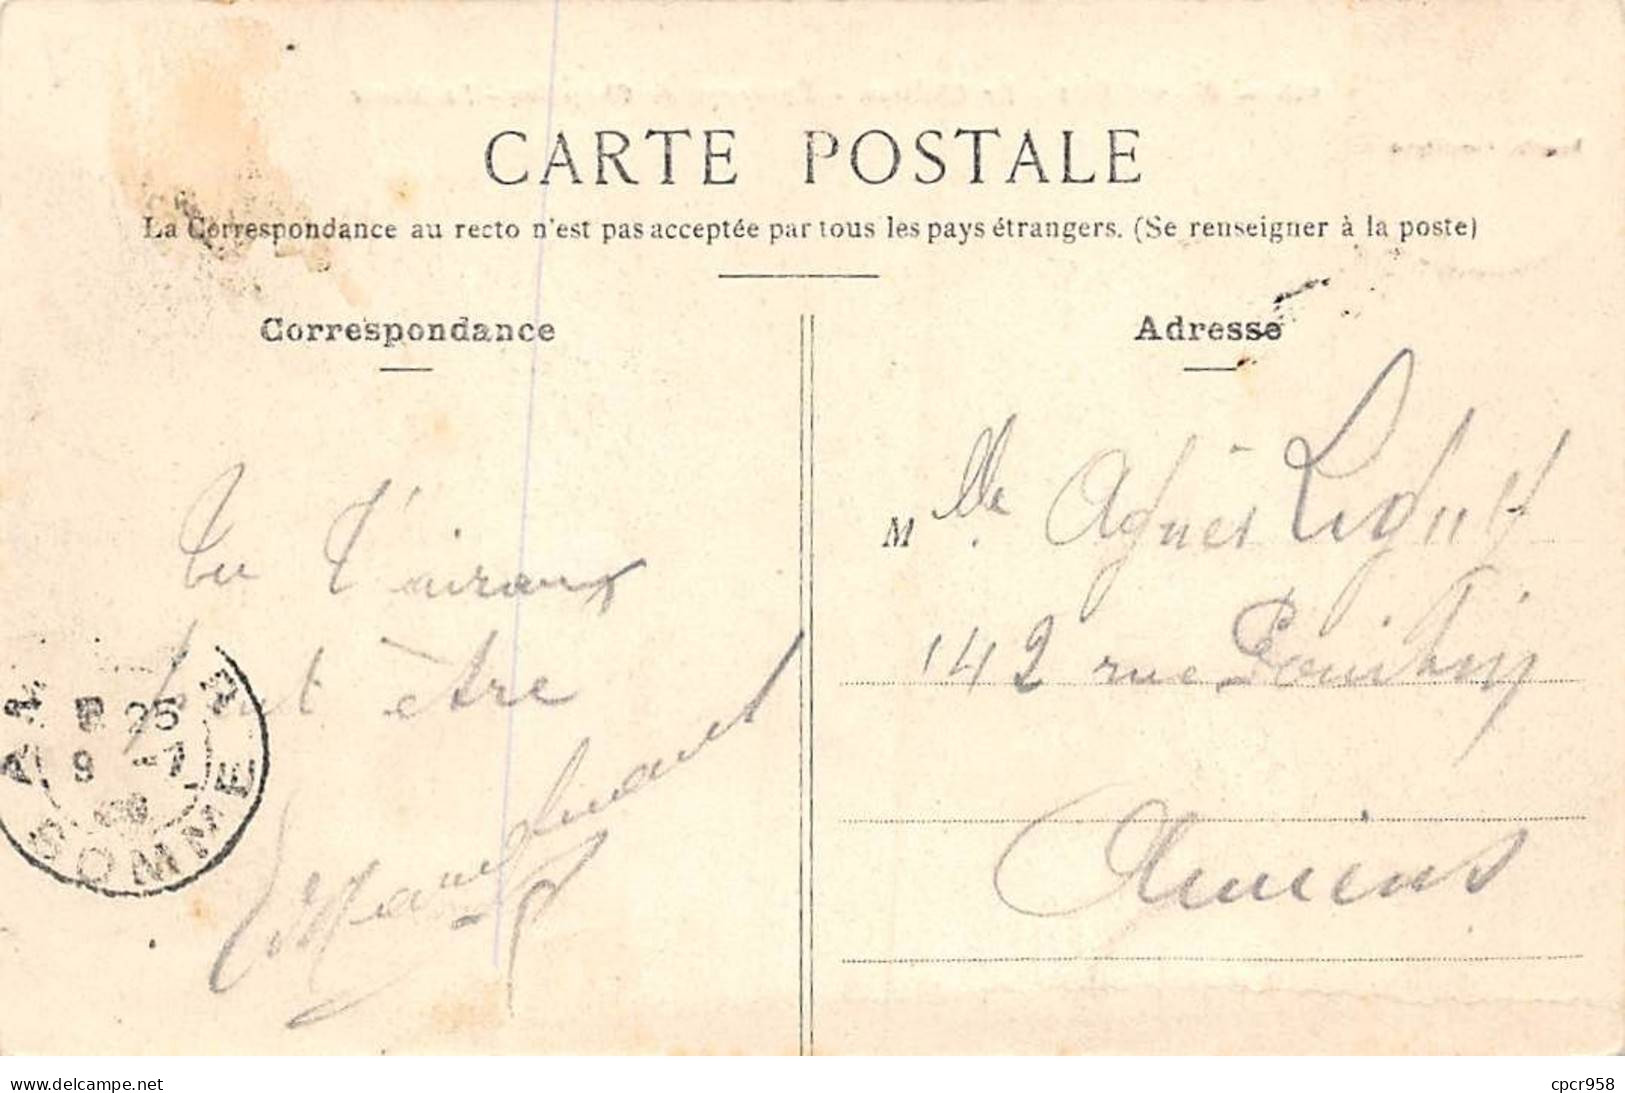 CARTE POSTALE
La Correspondance au recto n'est pas acceptée par tous les pays étrangers. (Se renseigner à la poste)
Correspondance
Adresse
peut être
Mlle Agnès
142 rue
Amiens
8 25
9 -7
SOMME
www.delcampe.net
cpcr958